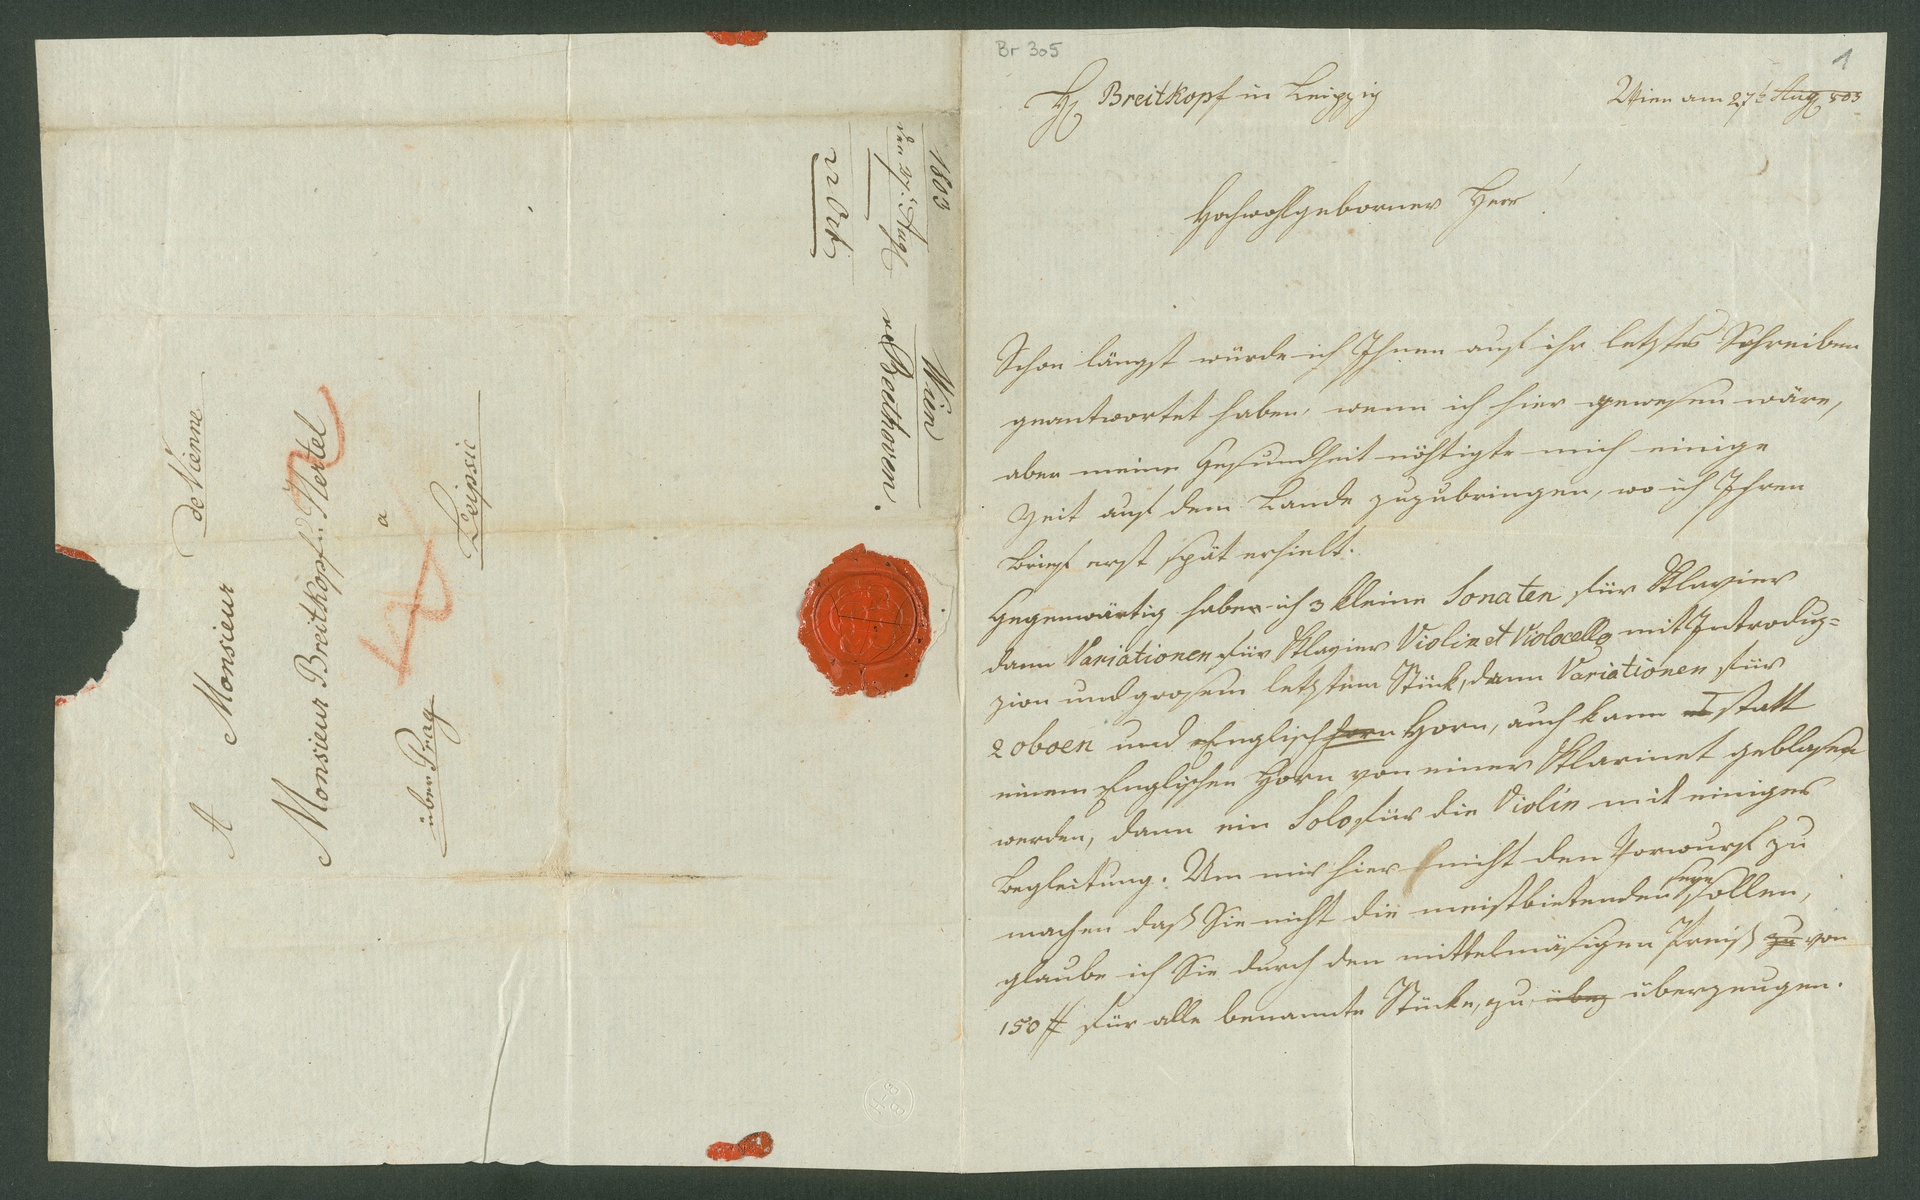 de Vienne
A Monsieur
Monsieur Breitkopf: Hertel
a
Leipsic
über Prag
1803 Wien
den 27. Aug
v Beethoven.
Br 305
1
H Breitkopf in Leipzig
Wien am 27t Aug 803
Hochwohlgeborner Herr!
Schon längst würde ich Ihnen auf ihr letztes Schreiben
geantwortet haben, wenn ich hier gewesen wäre,
aber meine Gesundheit nöthigte mich einige
Zeit auf dem Lande zuzubringen, wo ich Ihren
Brief erst spät erhielt.
Gegenwärtig habe ich 3 kleine Sonaten für Klavier
dann Variationen für Klavier Violin et Violocello mit Introduz=
zion und grosem letzten Stück, dann Variationen für
2 oboen und Englisch horn Horn, auch kann statt
einem Englischen Horn von einer Klarinet geblasen
werden, dann ein Solo für die Violin mit einiger
Begleitung. Um mir hier nicht den Vorwurf zu
machen daß Sie nicht die meistbietenden seyn sollen,
glaube ich Sie durch den mittelmäsigen Preiß zu von
150 für alle benannte Stücke, zu über überzeugen.